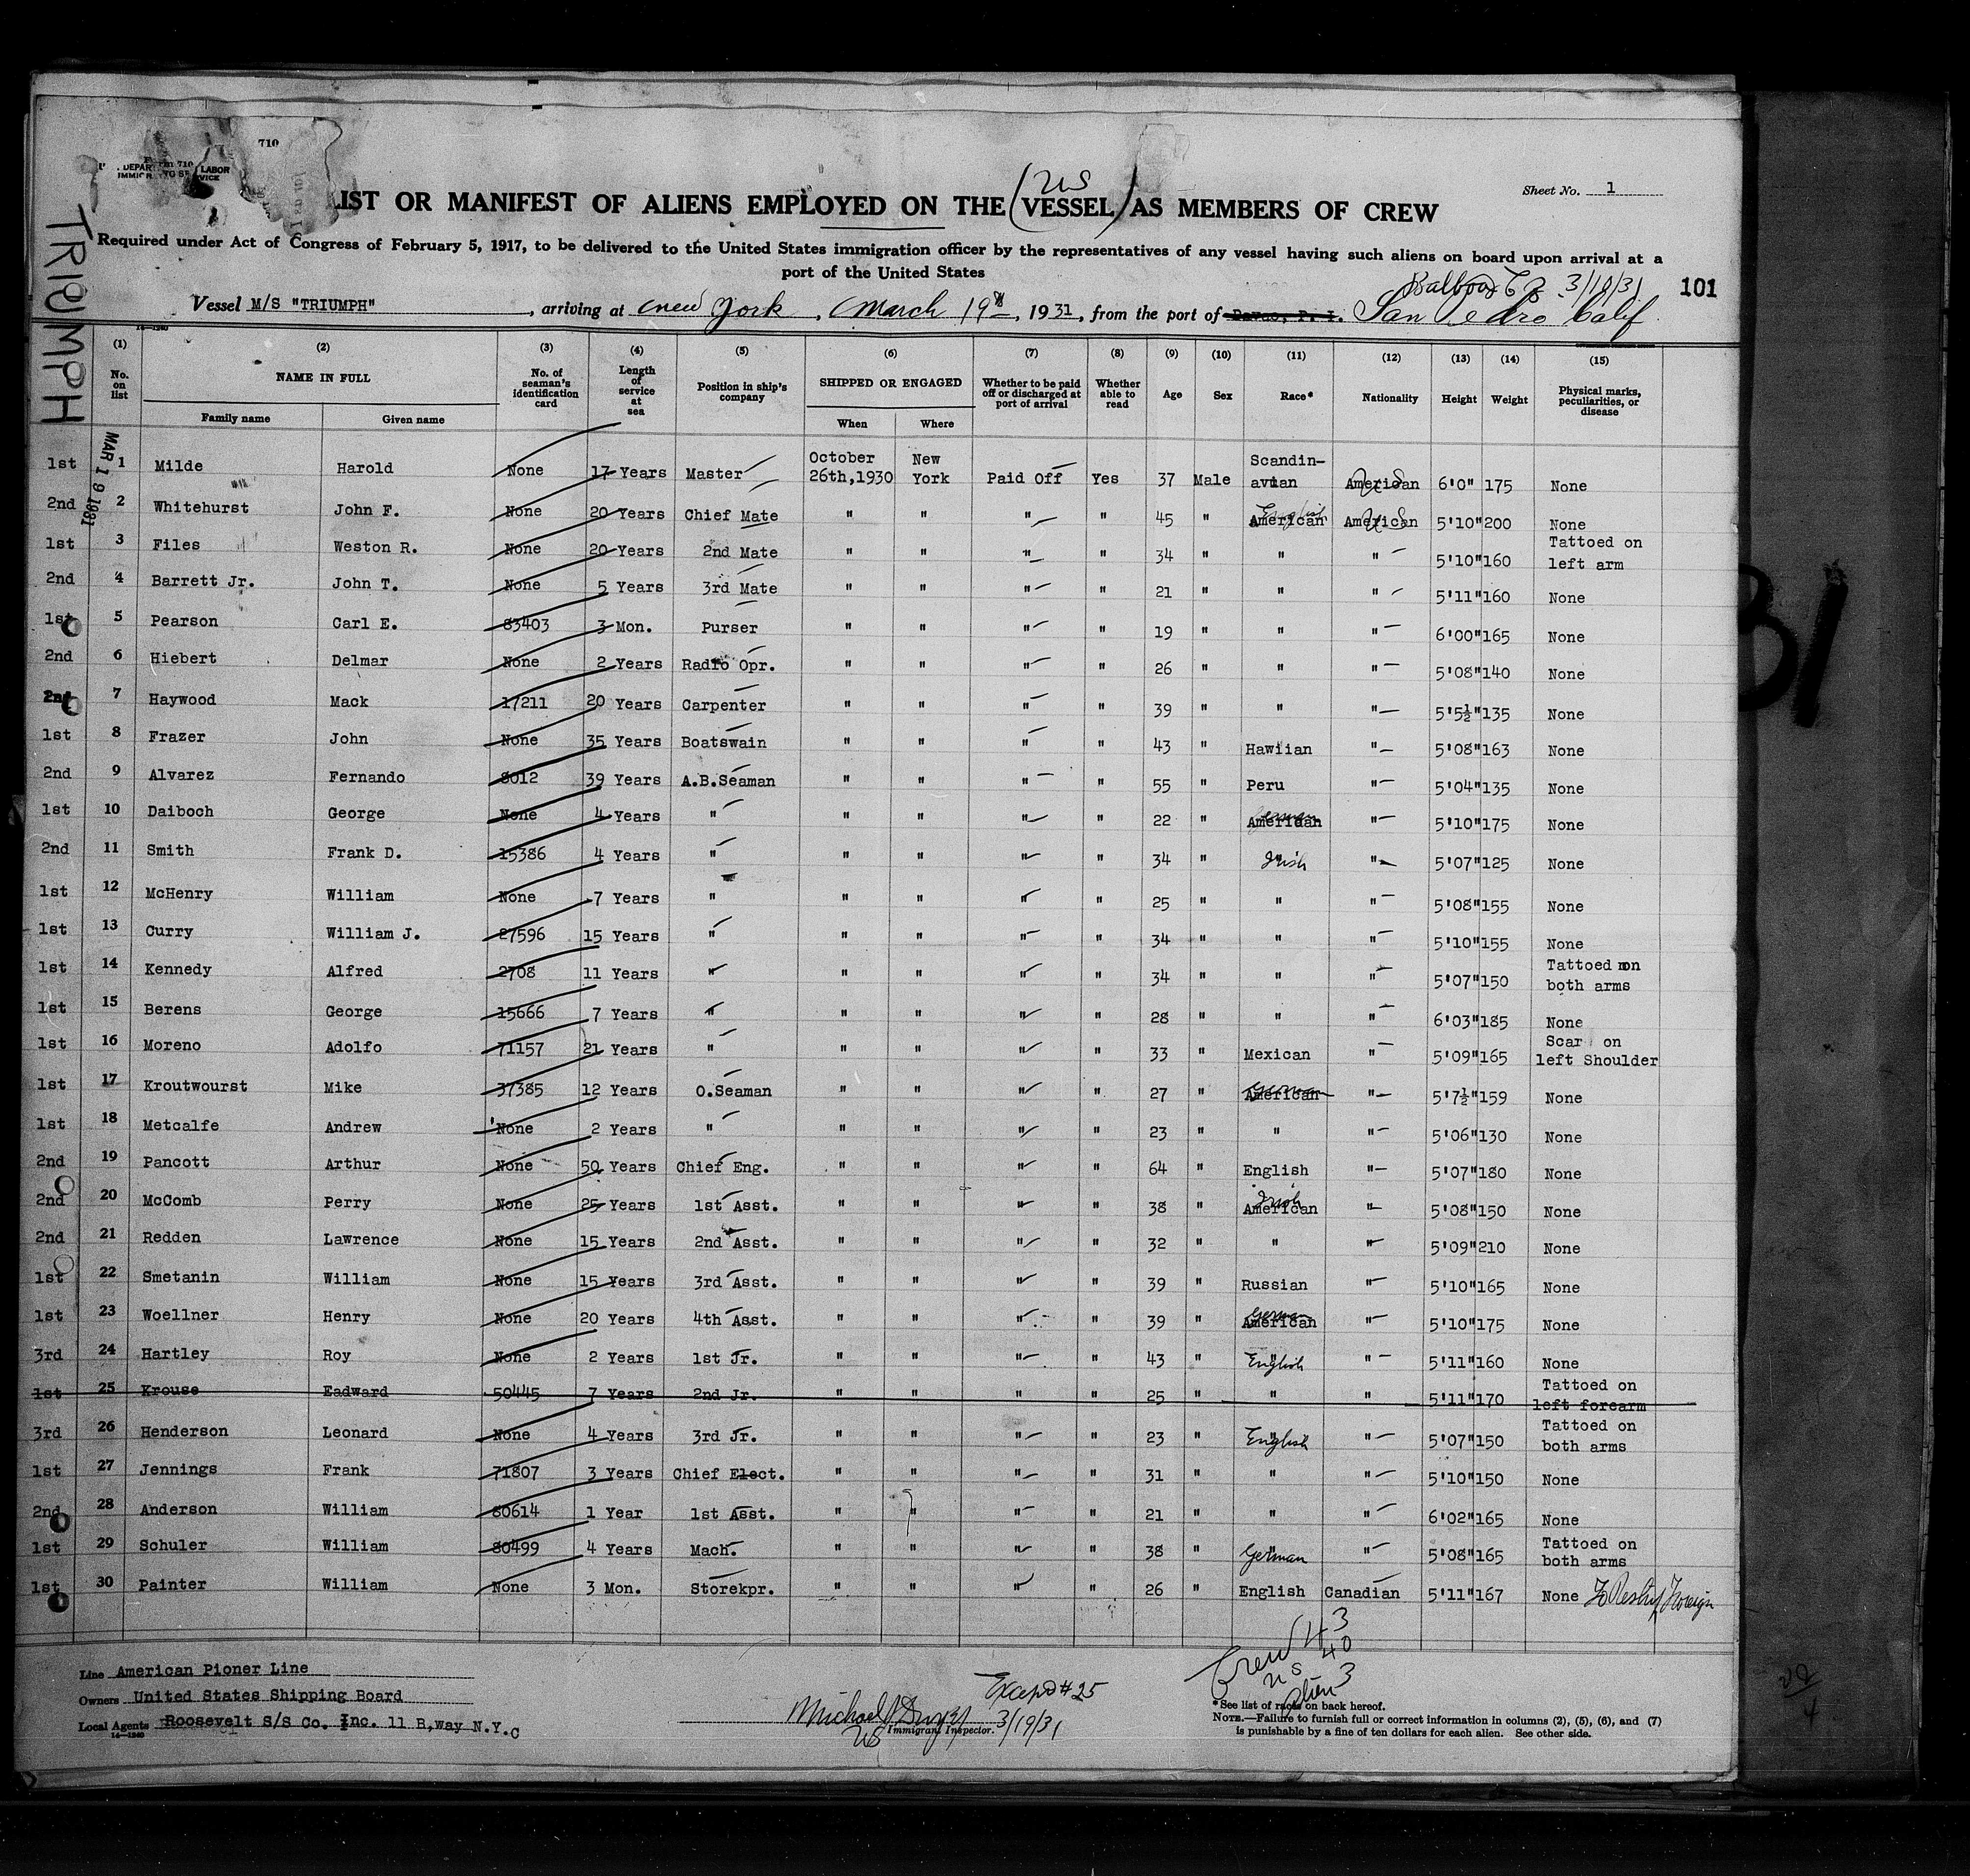 710
Form 710
LABOR
TRIUMPH
US
LIST OR MANIFEST OF ALIENS EMPLOYED ON THE (VESSEL) AS MEMBERS OF CREW
Sheet No. 1
Required under Act of Congress of February 5, 1917, to be delivered to the United States immigration officer by the representatives of any vessel having such aliens on board upon arrival at a
port of the United States
Balboa C Z 3/10/31 101
Vessel M/S "TRIUMPH", arriving at New York, March 19th, 1931, from the port of Davao, P. I. San Pedro Calif
(1) (2) (3) (4) (5) (6) (7) (8) (9) (10) (11) (12) (13) (14) (15)
No. on list NAME IN FULL Family name Given name No. of seaman's identification card Length of service at sea Position in ship's company SHIPPED OR ENGAGED When Where Whether to be paid off or discharged at port of arrival Whether able to read Age Sex Race* Nationality Height Weight Physical marks, peculiarities, or disease
MAR 19 1931
1st 1 Milde Harold None 17 Years Master October 26th,1930 New York Paid Off Yes 37 Male Scandin-avian American US 6'0" 175 None
2nd 2 Whitehurst John F. None 20 Years Chief Mate " " " " 45 " American English American US 5'10" 200 None
1st 3 Files Weston R. None 20 Years 2nd Mate " " " " 34 " " " 5'10" 160 Tattoed on left arm
2nd 4 Barrett Jr. John T. None 5 Years 3rd Mate " " " " 21 " " " 5'11" 160 None
1st 5 Pearson Carl E. 83403 3 Mon. Purser " " " " 19 " " " 6'00" 165 None
2nd 6 Hiebert Delmar None 2 Years Radio Opr. " " " " 26 " " " 5'08" 140 None
2nd 7 Haywood Mack 17211 20 Years Carpenter " " " " 39 " " " 5'5½" 135 None
1st 8 Frazer John None 35 Years Boatswain " " " " 43 " Hawiian " 5'08" 163 None
2nd 9 Alvarez Fernando 8012 39 Years A.B.Seaman " " " " 55 " Peru " 5'04" 135 None
1st 10 Daiboch George None 4 Years " " " " " 22 " American German " 5'10" 175 None
2nd 11 Smith Frank D. 15386 4 Years " " " " " 34 " Irish " 5'07" 125 None
1st 12 McHenry William None 7 Years " " " " " 25 " " " 5'08" 155 None
1st 13 Curry William J. 27596 15 Years " " " " " 34 " " " 5'10" 155 None
1st 14 Kennedy Alfred 2708 11 Years " " " " " 34 " " " 5'07" 150 Tattoed on both arms
1st 15 Berens George 15666 7 Years " " " " " 28 " " " 6'03" 185 None
1st 16 Moreno Adolfo 71157 21 Years " " " " " 33 " Mexican " 5'09" 165 Scar on left Shoulder
1st 17 Kroutwourst Mike 37385 12 Years O.Seaman " " " " 27 " American German " 5'7½" 159 None
1st 18 Metcalfe Andrew None 2 Years " " " " " 23 " " " 5'06" 130 None
2nd 19 Pancott Arthur None 50 Years Chief Eng. " " " " 64 " English " 5'07" 180 None
2nd 20 McComb Perry None 25 Years 1st Asst. " " " " 38 " American Irish " 5'08" 150 None
2nd 21 Redden Lawrence None 15 Years 2nd Asst. " " " " 32 " " " 5'09" 210 None
1st 22 Smetanin William None 15 Years 3rd Asst. " " " " 39 " Russian " 5'10" 165 None
1st 23 Woellner Henry None 20 Years 4th Asst. " " " " 39 " American German " 5'10" 175 None
3rd 24 Hartley Roy None 2 Years 1st Jr. " " " " 43 " English " 5'11" 160 None
1st 25 Krouse Eadward 50445 7 Years 2nd Jr. " " " " 25 " " " 5'11" 170 Tattoed on left forearm
3rd 26 Henderson Leonard None 4 Years 3rd Jr. " " " " 23 " English " 5'07" 150 Tattoed on both arms
1st 27 Jennings Frank 71807 3 Years Chief Elect. " " " " 31 " " " 5'10" 150 None
2nd 28 Anderson William 80614 1 Year 1st Asst. " " " " 21 " " " 6'02" 165 None
1st 29 Schuler William 80499 4 Years Mach. " " " " 38 " German " 5'08" 165 Tattoed on both arms
1st 30 Painter William None 3 Mon. Storekpr. " " " " 26 " English Canadian 5'11" 167 None To Reship Foreign
Crew 43
US 40
alien 3
Line American Pioner Line
Owners United States Shipping Board
Local Agents Roosevelt S/S Co. Inc. 11 B,way N.Y.C
16—1240
Except #25
Michael J Dwyer 3/19/31
US Immigrant Inspector.
*See list of races on back hereof.
NOTE.—Failure to furnish full or correct information in columns (2), (5), (6), and (7)
is punishable by a fine of ten dollars for each alien. See other side.
31